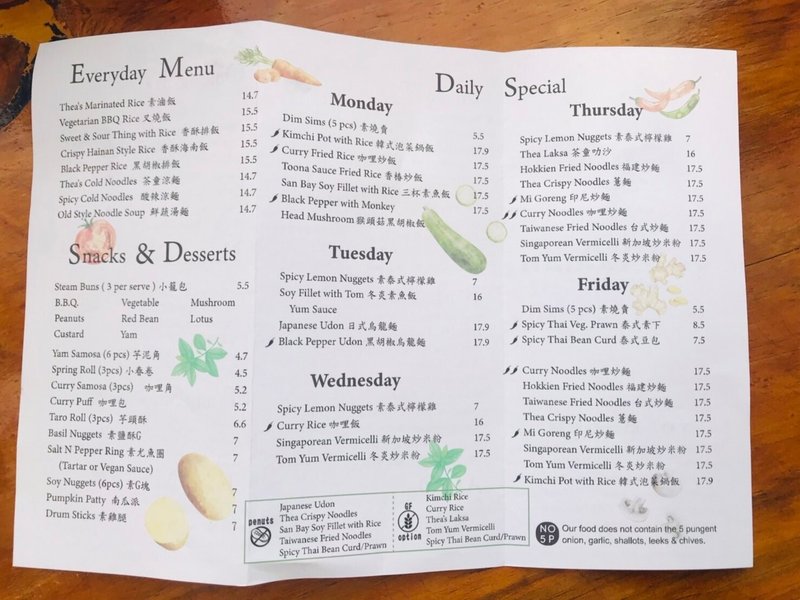 Everyday Menu
Thea's Marinated Rice 素滷飯 14.7
Vegetarian BBQ Rice 叉燒飯 15.5
Sweet & Sour Thing with Rice 香酥排飯 15.5
Crispy Hainan Style Rice 香酥海南飯 15.5
Black Pepper Rice 黑胡椒排飯 15.5
Thea's Cold Noodles 茶童涼麵 14.7
Spicy Cold Noodles 酸辣涼麵 14.7
Old Style Noodle Soup 鮮蔬湯麵 14.7
Snacks & Desserts
Steam Buns ( 3 per serve ) 小籠包 5.5
B.B.Q. Vegetable Mushroom
Peanuts Red Bean Lotus
Custard Yam
Yam Samosa (6 pcs) 芋泥角 4.7
Spring Roll (3pcs) 小春卷 4.5
Curry Samosa (3pcs) 咖哩角 5.2
Curry Puff 咖哩包 5.2
Taro Roll (3pcs) 芋頭酥 6.6
Basil Nuggets 素鹽酥G 7
Salt N Pepper Ring 素尤魚圈 7
(Tartar or Vegan Sauce)
Soy Nuggets (6pcs) 素G塊 7
Pumpkin Patty 南瓜派 7
Drum Sticks 素雞腿 7
Daily Special
Monday
Dim Sims (5 pcs) 素燒賣 5.5
Kimchi Pot with Rice 韓式泡菜鍋飯 17.9
Curry Fried Rice 咖哩炒飯 17.5
Toona Sauce Fried Rice 香椿炒飯 17.5
San Bay Soy Fillet with Rice 三杯素魚飯 17.5
Black Pepper with Monkey 17.5
Head Mushroom 猴頭菇黑胡椒飯
Tuesday
Spicy Lemon Nuggets 素泰式檸檬雞 7
Soy Fillet with Tom 冬炎素魚飯 16
Yum Sauce
Japanese Udon 日式烏龍麵 17.9
Black Pepper Udon 黑胡椒烏龍麵 17.9
Wednesday
Spicy Lemon Nuggets 素泰式檸檬雞 7
Curry Rice 咖哩飯 16
Singaporean Vermicelli 新加坡炒米粉 17.5
Tom Yum Vermicelli 冬炎炒米粉 17.5
Thursday
Spicy Lemon Nuggets 素泰式檸檬雞 7
Thea Laksa 茶童叻沙 16
Hokkien Fried Noodles 福建炒麵 17.5
Thea Crispy Noodles 蔥麵 17.5
Mi Goreng 印尼炒麵 17.5
Curry Noodles 咖哩炒麵 17.5
Taiwanese Fried Noodles 台式炒麵 17.5
Singaporean Vermicelli 新加坡炒米粉 17.5
Tom Yum Vermicelli 冬炎炒米粉 17.5
Friday
Dim Sims (5 pcs) 素燒賣 5.5
Spicy Thai Veg. Prawn 泰式素下 8.5
Spicy Thai Bean Curd 泰式豆包 7.5
Curry Noodles 咖哩炒麵 17.5
Hokkien Fried Noodles 福建炒麵 17.5
Taiwanese Fried Noodles 台式炒麵 17.5
Thea Crispy Noodles 蔥麵 17.5
Mi Goreng 印尼炒麵 17.5
Singaporean Vermicelli 新加坡炒米粉 17.5
Tom Yum Vermicelli 冬炎炒米粉 17.5
Kimchi Pot with Rice 韓式泡菜鍋飯 17.9
penuts
Japanese Udon
Thea Crispy Noodles
San Bay Soy Fillet with Rice
Taiwanese Fried Noodles
Spicy Thai Bean Curd/Prawn
GF
option
Kimchi Rice
Curry Rice
Thea's Laksa
Tom Yum Vermicelli
Spicy Thai Bean Curd/Prawn
NO
5P
Our food does not contain the 5 pungent
onion, garlic, shallots, leeks & chives.